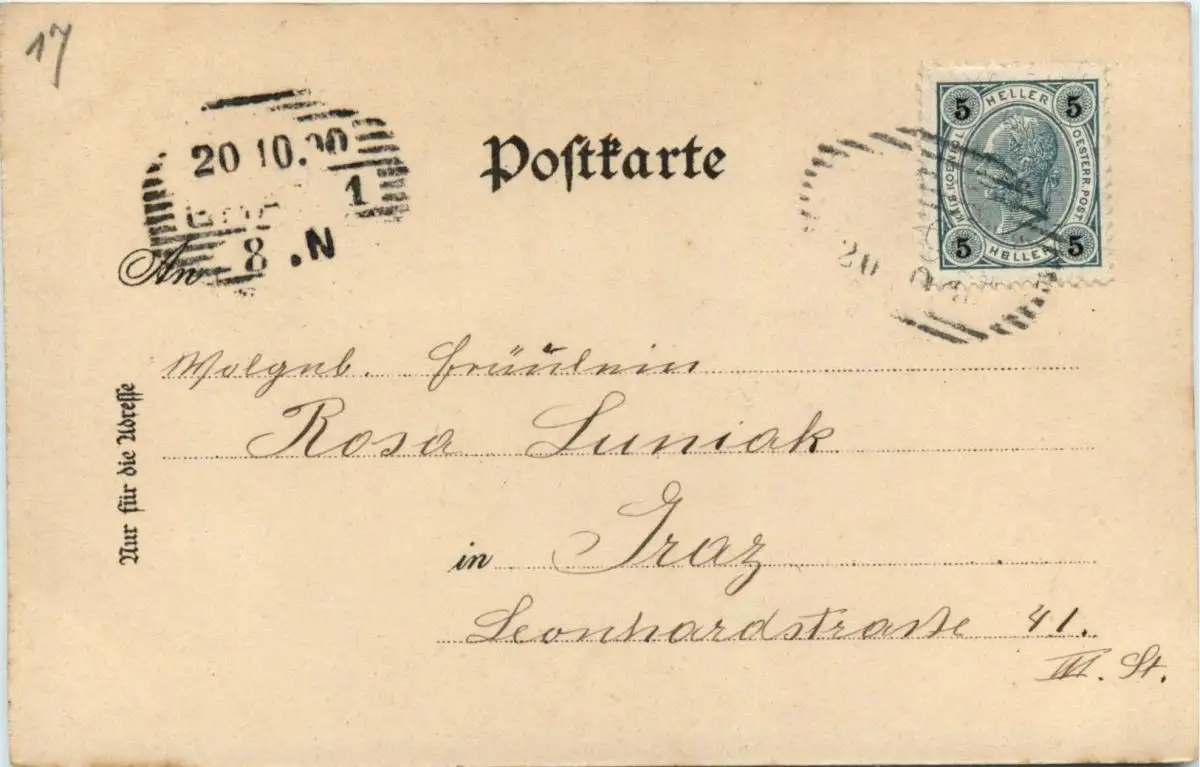 17
Postkarte
20 10.00
1
8 .N
5 HELLER 5
KAIS. KOENIGL. OESTERR. POST.
5 HELLER 5
20
An
Wolgeb. Fräulein
Rosa Luniak
in Graz
Leonhardstraße 41.
III. St.
Nur für die Adresse